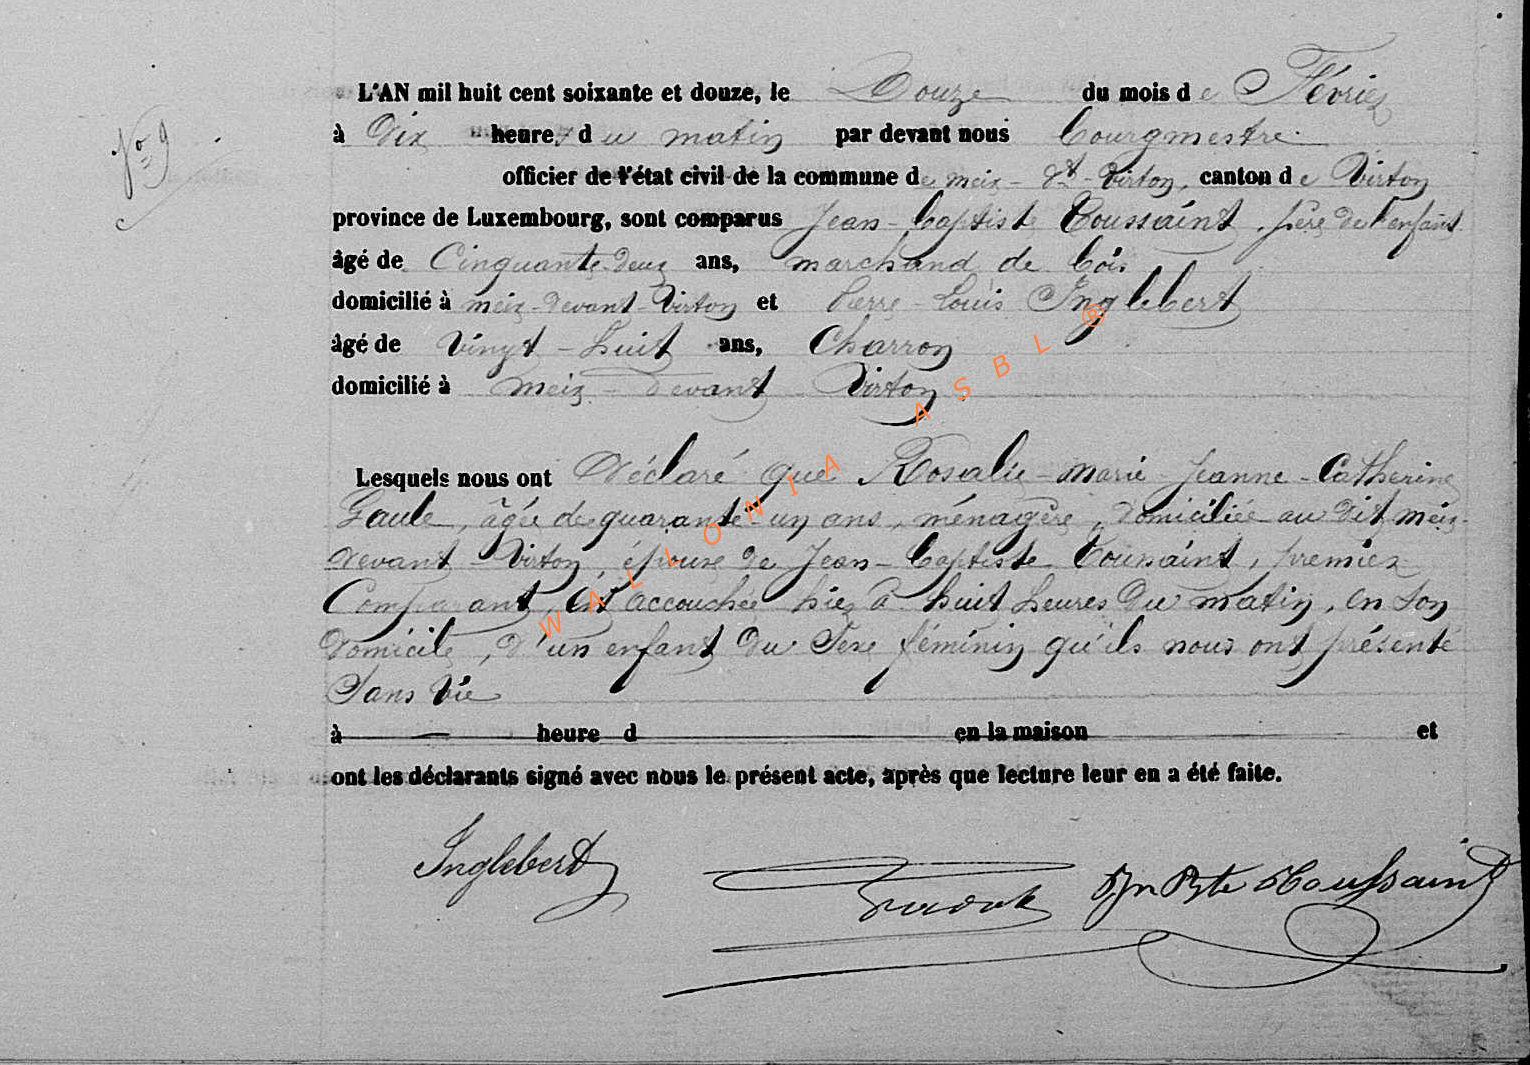 No 9
L'AN mil huit cent soixante et douze, le Douze du mois de Février
à Dix heures du matin par devant nous bourgmestre
officier de l'état civil de la commune de meix-dt-Virton, canton de Virton
province de Luxembourg, sont comparus Jean-baptiste Toussaint, père de l'enfant
âgé de Cinquante-deux ans, marchand de bois
domicilié à meix-devant-Virton et Pierre Louis Inglebert
âgé de Vingt-huit ans, Charron
domicilié à meix-devant Virton
Lesquels nous ont Déclaré que Rosalie-marie-Jeanne-Catherine
Gaule, âgée de quarante-un ans, ménagère, domiciliée au dit meix-
devant-Virton, épouse de Jean-baptiste Toussaint, premier
Comparant, est accouchée hier à huit heures du matin, en son
domicile, d'un enfant du Sexe féminin qu'ils nous ont présenté
Sans Vie
à heure d en la maison et
ont les déclarants signé avec nous le présent acte, après que lecture leur en a été faite.
Inglebert Jn Bte Toussaint
WALLONIA ASBL ®